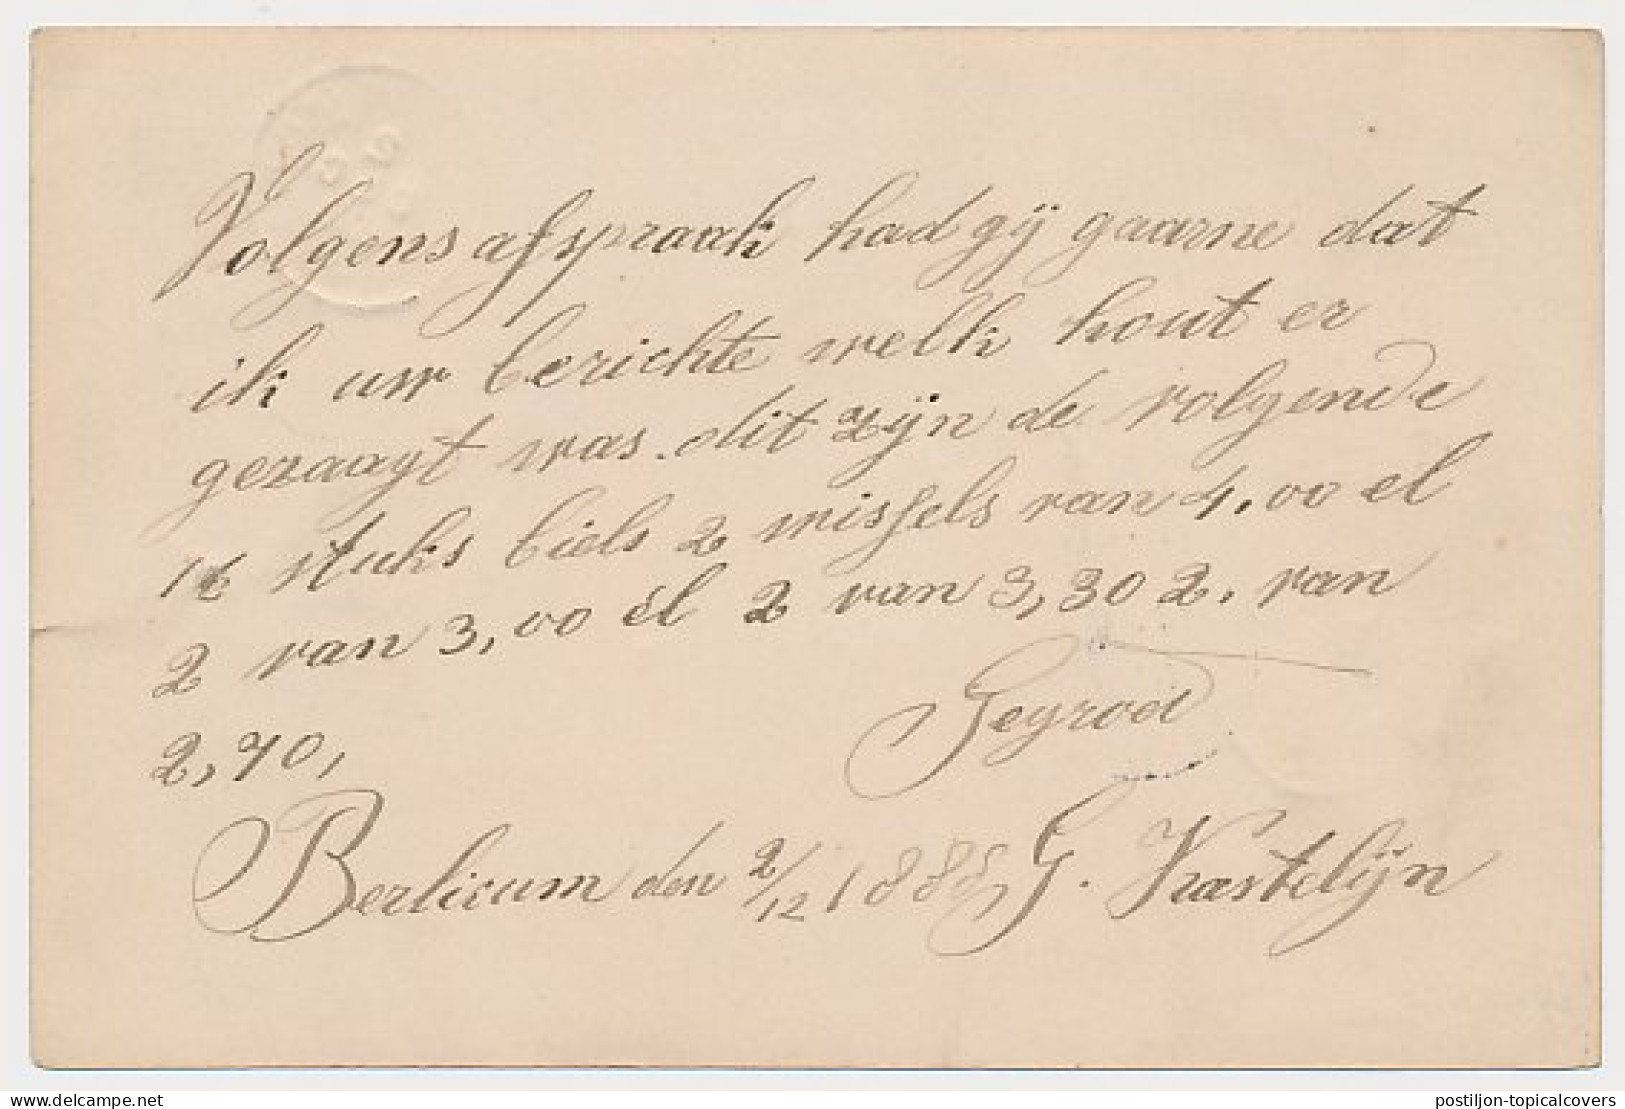 Volgens afspraak had gij gaarne dat
ik uw berichte welk hout er
gezaagt was. dit zijn de volgende
16 stuks biels 2 wissels van 4,00 el
2 van 3,00 el 2 van 3,30 2. van
2,70,
Gegroet
Berlicum den 2/12 1888 G. Kastelijn
delcampe.net
postiljon-topicalcovers